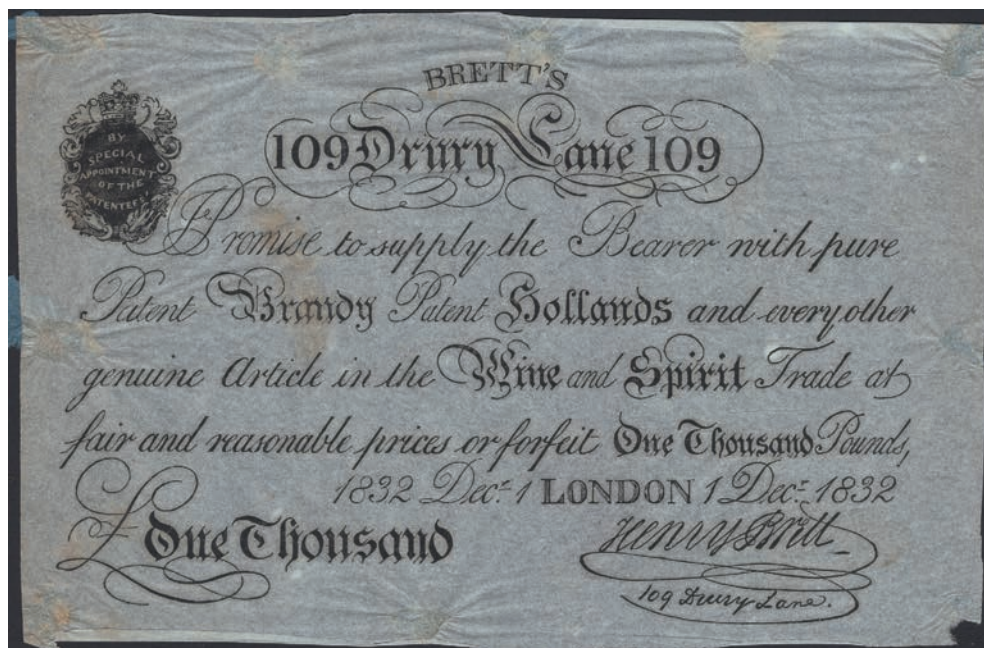 BRETT'S
109 Drury Lane 109
BY
SPECIAL
APPOINTMENT
OF THE
PATENTEES
I Promise to supply the Bearer with pure
Patent Brandy Patent Hollands and every other
genuine Article in the Wine and Spirit Trade at
fair and reasonable prices or forfeit One Thousand Pounds,
1832 Decr. 1 LONDON 1 Decr. 1832
£ One Thousand
Henry Brett
109 Drury Lane.